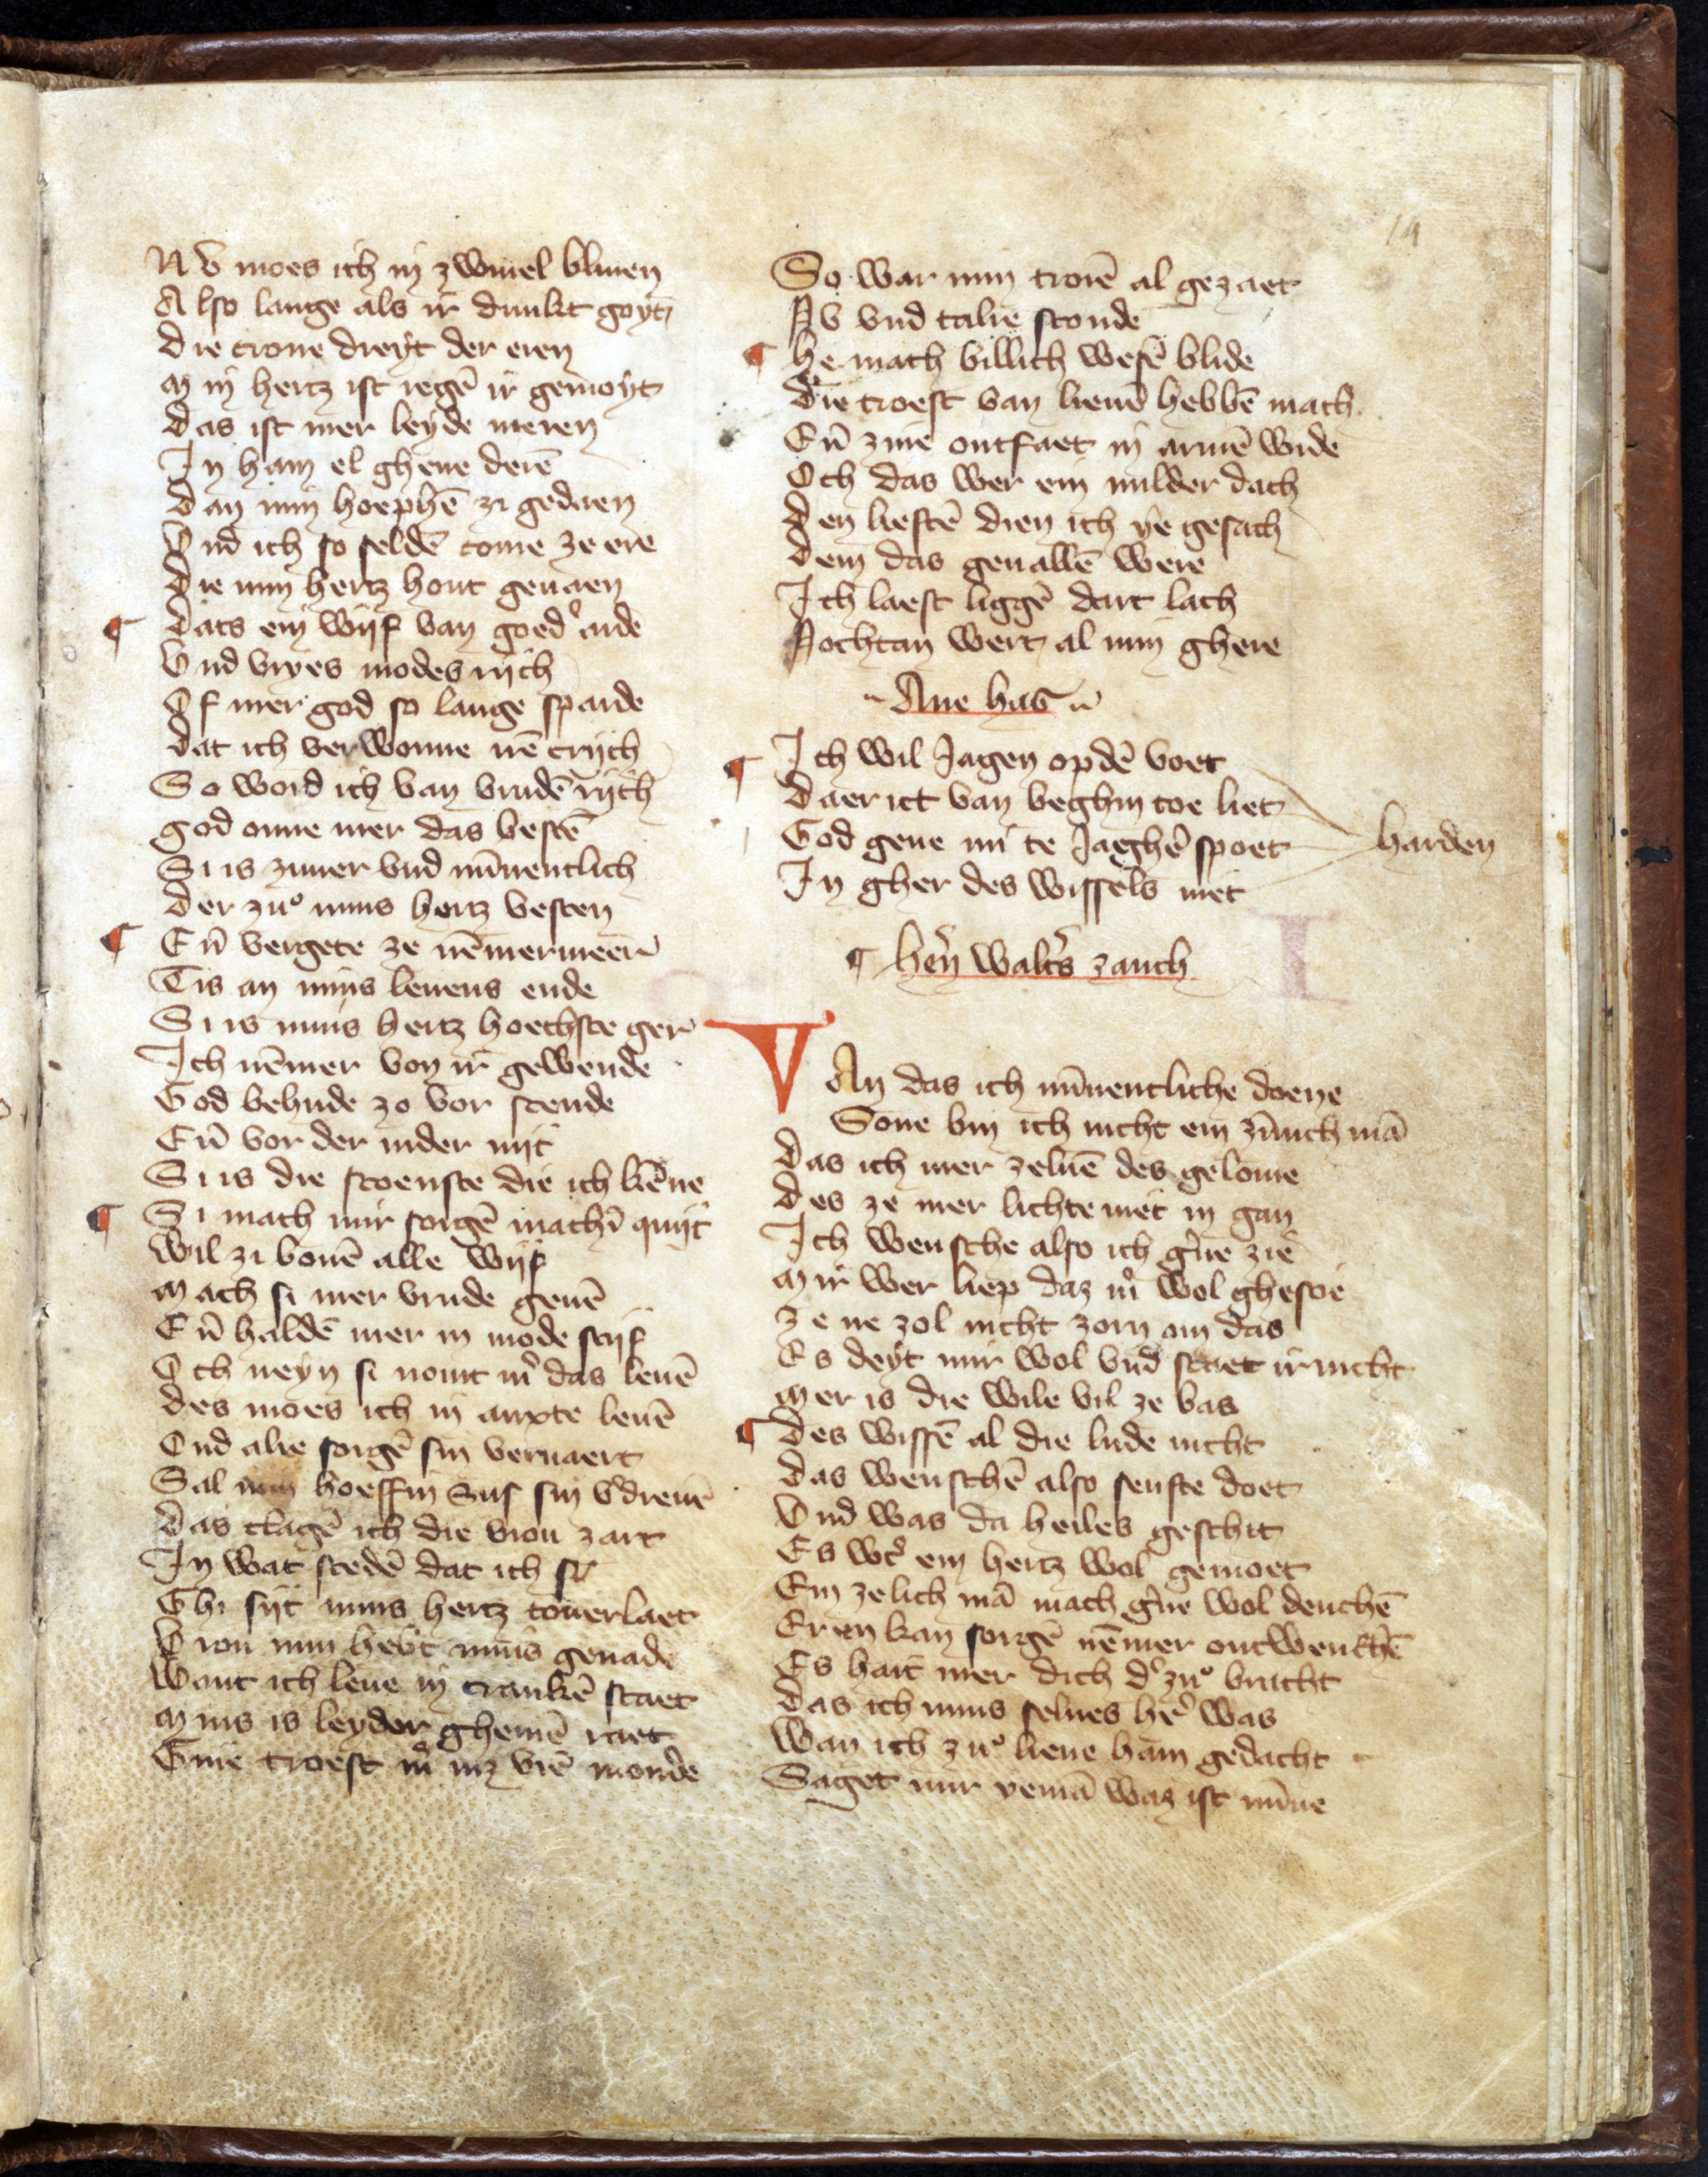 NV moes ich in zwiuel bliuen
Also lange als ir dunkt goyt
Die crone dreyt der eren
Min hertz ist iegē ir gemoyt
Das ist mer leyde meren
In ham el ghene derē
Dan min hoephē zi gedaen
Vnd ich so seldē come ze ere
Die min hertz hout geuaen
¶ Dats ein wijf van goedʾ arde
Vnd vryes modes rijch
Of mer god so lange sparde
Dat ich verwonne nē crijch
So word ich van vrudē rijch
God onne mer das bestē
Si is zuuer vnd mīnentlich
Der zuͦ mins hertz vesten
¶ Eñ vergete ze nēmermeer
Tis an mijns leuens ende
Si is mijns hertz hoechste ger
Ich nēmer von ir gewende
God behude zo vor scende
Eñ vor der nider nijt
Si is die scoenste die ich kēne
¶ Si mach mir sorgē machē quijt
Wil zi bouē alle wijf
Mach si mer vrude geuē
Eñ haldē mer in mode stijf
Och neyn si nomt mʾ das leuē
Des moes ich in anxte leuē
Ond alie sorgē sin veruaert
Sal min hoeffin sus sin vʾdreuē
Das clagē ich die vrou zart
In wat stedē dat ich si
Ghi sijt mins hertz touerlaet
Vrou min hebt mijns genade
Want ich leue in crankē staet
Mins is leyder gheinē raet
Gnie troest mʾ niz vrē monde
So war min trorē al gezaet
Nv vnd talre stonde
¶ He mach billich wesē blide
Die troest van lieuē hebbē mach
Eñ zine ontfaet in armē wide
Och das wer ein milder dach
Den liestē dien ich ye gesach
Dem das geuallē were
Ich laest liggē dart lach
Nochtan wert al min ghere
Ane has
¶ Ich wil Jagen opdē voet
Daer ict van beghin toe liet
God geue mi te Jaeghē spoet
In gher des wissels niet
harden
¶ hʾen walts zanch
VAn das ich mīnentliche doene
Sone bin ich nicht ein zīnich mā
Das ich mer zeluē des gelome
Des ze mer lichte niet in gan
Ich wensche also ich gʾne zie
Mir wer liep daz mʾ wol ghescie
Ze ne zol nicht zorn om das
Es deyt mir wol vnd scaet ir nicht
Mer is die wile vil ze bas
¶ Des wissē al die lude nicht
Das wenschē also senfte doet
Vnd was da heiles geschit
Es wtʾ ein hertz wol gemoet
Ein zelich mā mach gʾne wol denchē
Er en kan sorgē nēmer ontwenchē
Es hait mer dich dʾ zuͦ bracht
Das ich mins selues hʾe was
Wan ich zuͦ lieue ham gedacht
Saget mir yemā waz ist mīne